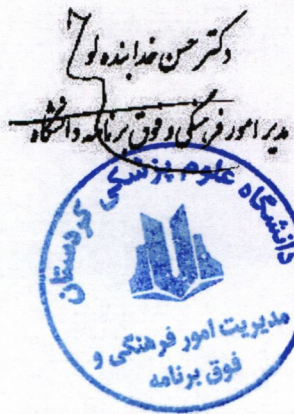 دکتر حسن خدابنده لو
مدیر امور فرهنگی و فوق برنامه دانشگاه
دانشگاه علوم پزشکی کردستان
مدیریت امور فرهنگی و
فوق برنامه